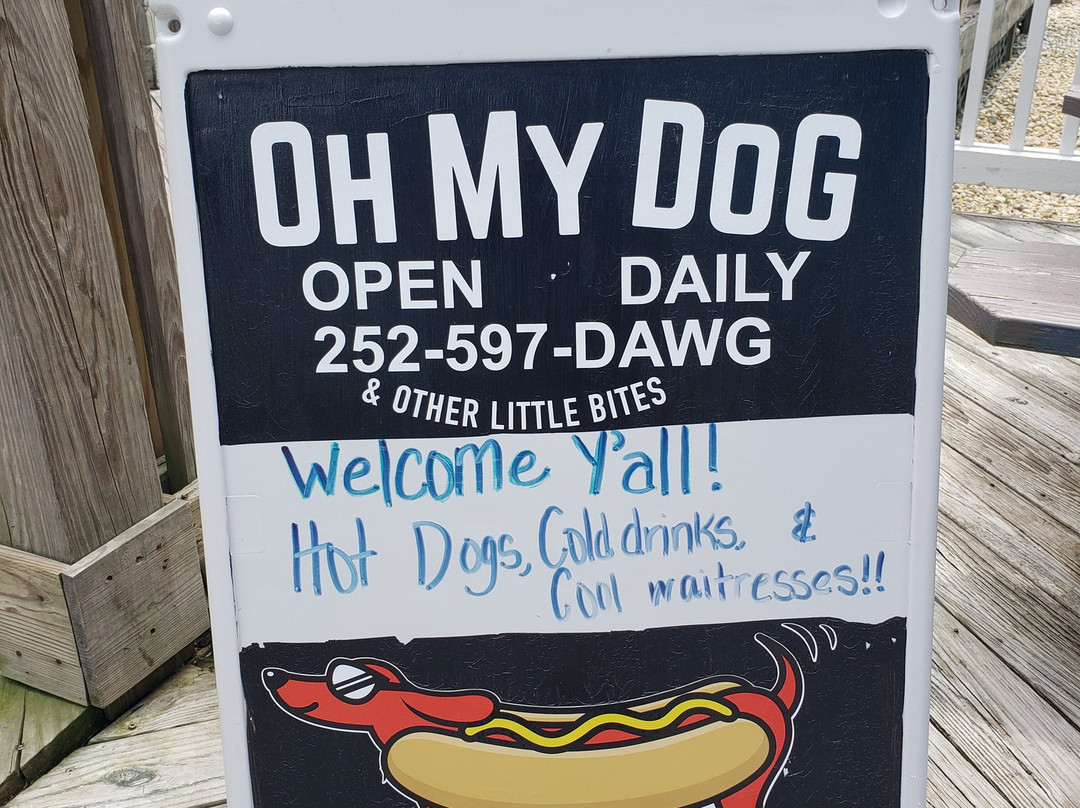 OH MY DOG
OPEN DAILY
252-597-DAWG
& OTHER LITTLE BITES
Welcome Y'all!
Hot Dogs, Cold drinks, &
Cool waitresses!!